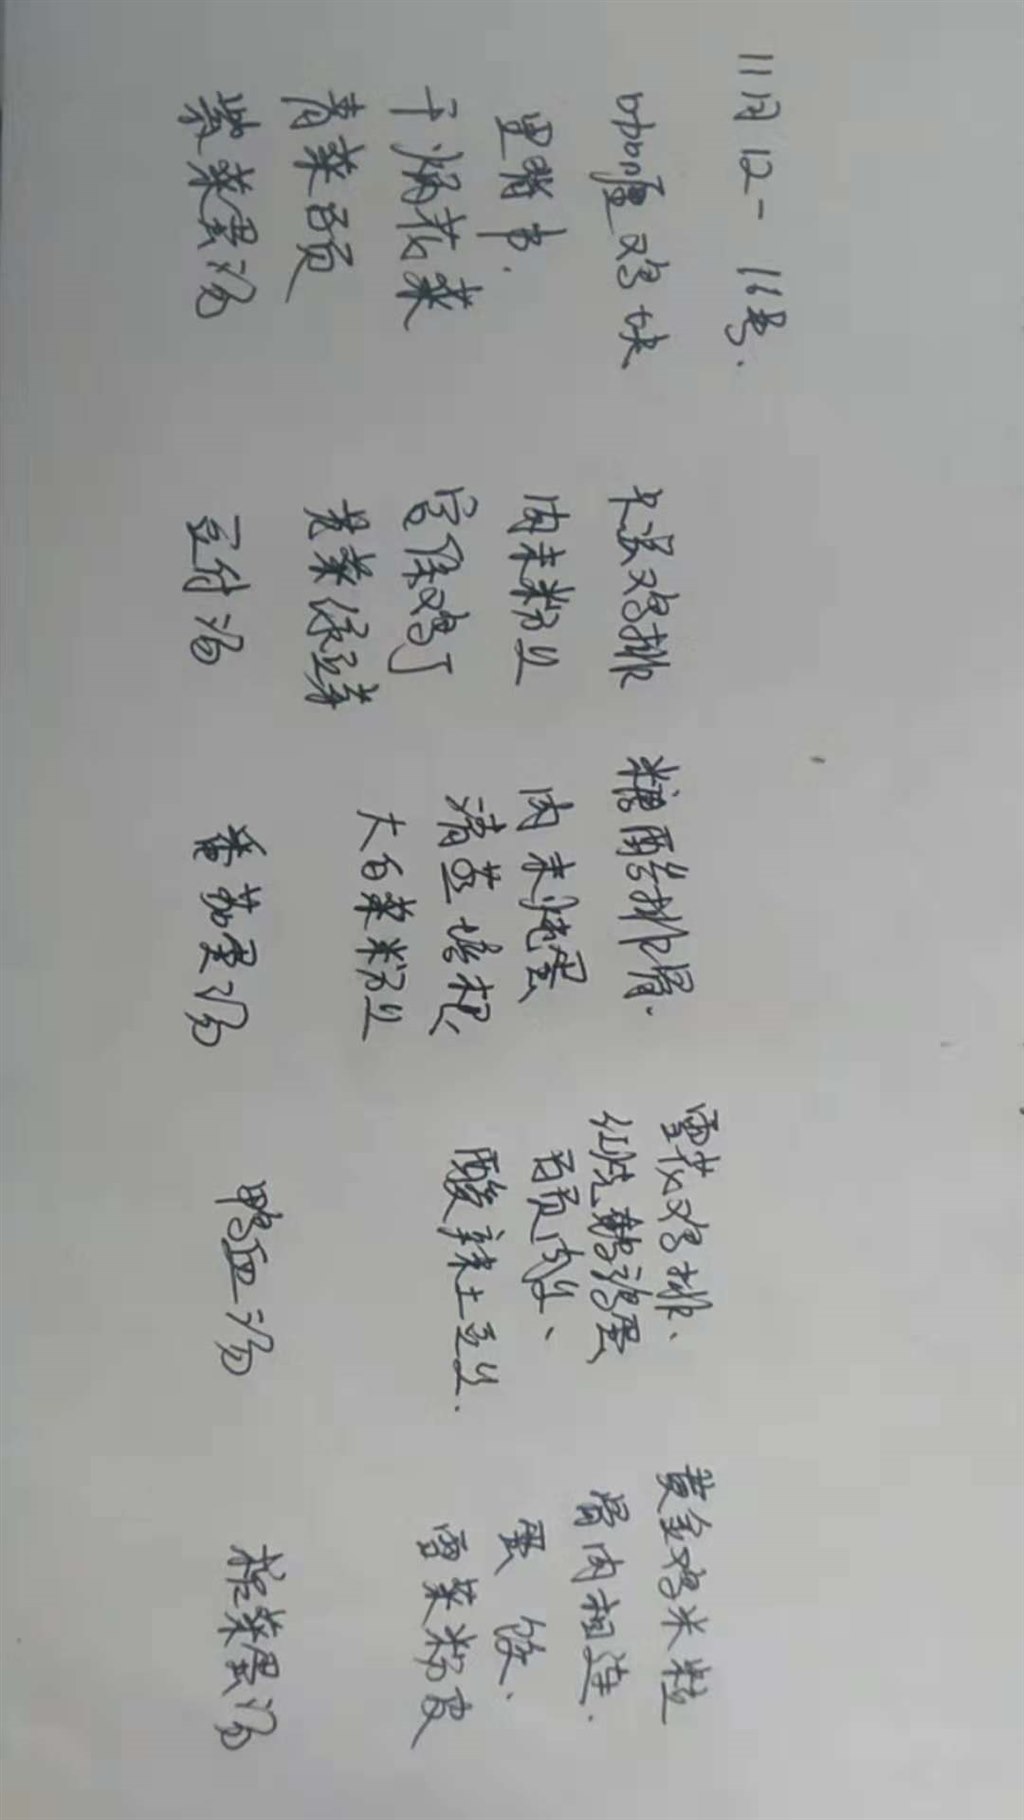 11月12-16号.
咖喱鸡块
里脊串.
干煸花菜
青菜百页
紫菜蛋汤
大派鸡排
肉末粉丝
宫保鸡丁
黄菜绿豆芽
豆付汤
糖醋排骨.
肉末炖蛋
清蒸培根
大白菜粉丝
番茄蛋汤
雪花鸡排、
红烧鹌鹑蛋
百页肉丝、
酸辣土豆丝.
鸭血汤
黄金鸡米粒
骨肉相连.
蛋饺.
雪菜粉皮
榨菜蛋汤